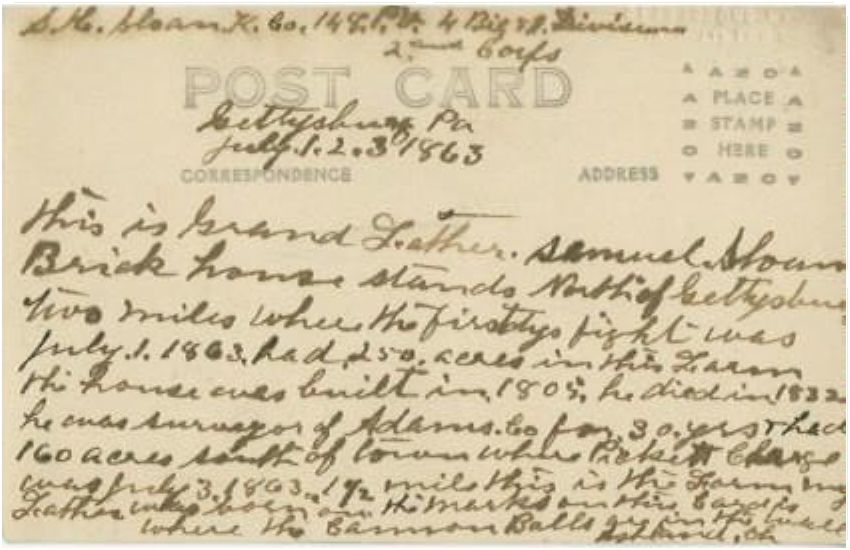 S.M. Sloan K. Co. 148. P.V. 4 Big 1. Division
2nd Corps
POST CARD
Gettysburg Pa
July. 1. 2. 3 1863
A AZO A
A PLACE A
Z STAMP Z
O HERE O
▼ AZO ▼
CORRESPONDENCE
ADDRESS
this is Grand Father. Samuel Sloan
Brick house stands North of Gettysburg
two miles where the first dys fight was
July. 1. 1863. had 250. acres in this Farm
the house was built in 1805, he died in 1832
he was surveyor of Adams. Co for 30. yrs & had
160 acres south of town where Pickett Charge
was July 3. 1863. 1 1/2 mile this is the Farm my
Father was born on the marks on this Card is
where the Cannon Balls are in the wall
Ashland, Oh